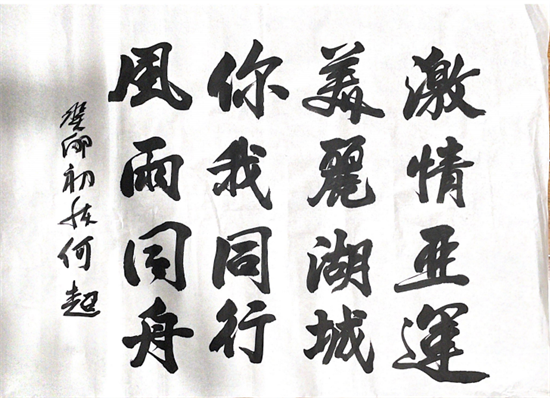 激情亚運
美麗湖城
你我同行
風雨同舟
癸卯初秋何超